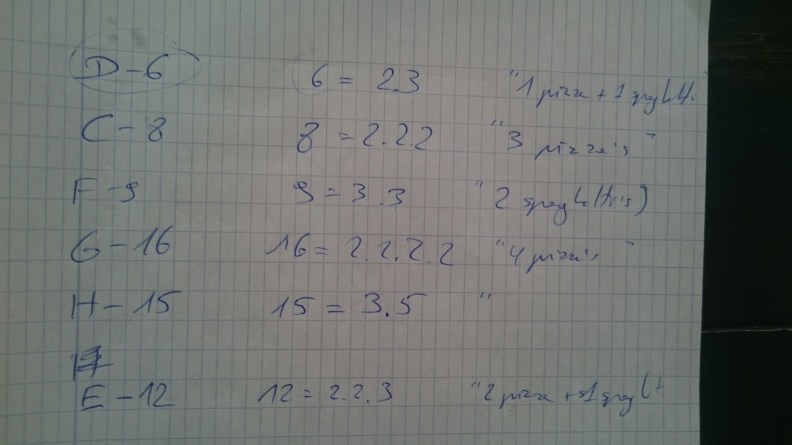 D-6 6 = 2.3 "1 pizza + 1 spaghetti
C-8 8 = 2.2 2 "3 pizza's"
F-9 9 = 3.3 "2 spaghettis")
G-16 16 = 2.2.2.2 "4 pizza's"
H-15 15 = 3.5 "
E-12 12 = 2.2.3 "2 pizza + 1